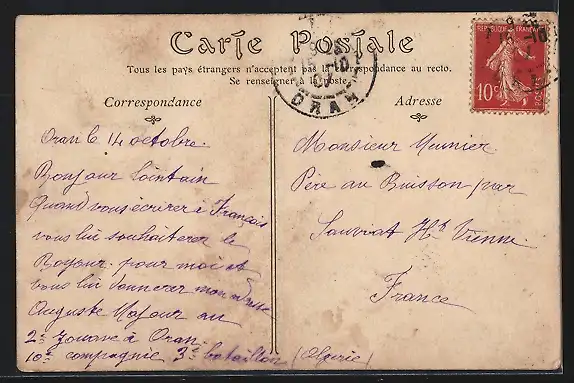 Carte Postale
Tous les pays étrangers n'acceptent pas la correspondance au recto.
Se renseigner à la poste.
Correspondance
Adresse
REPUBLIQUE FRANÇAISE
10c
ORAN
Oran le 14 octobre.
Bonjour Lointain
Quand vous écrirer à François
vous lui souhaiterer le
Bojour pour moi et
vous lui donnerer mon adresse
Auguste au
2e zouave à Oran
10e compagnie 3e bataillon (Algérie)
Monsieur Meunier
Père au Buisson par
Sauvat Hte Vienne
France